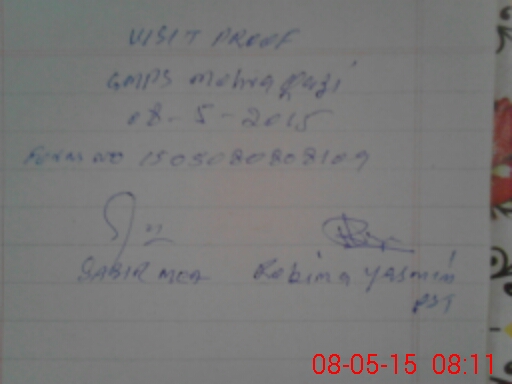 VISIT PROOF
GMPS Mohra Qazi
08-5-2015
Form no 1505080808109
SABIR MEA Robina Yasmin
PST
08-05-15 08:11